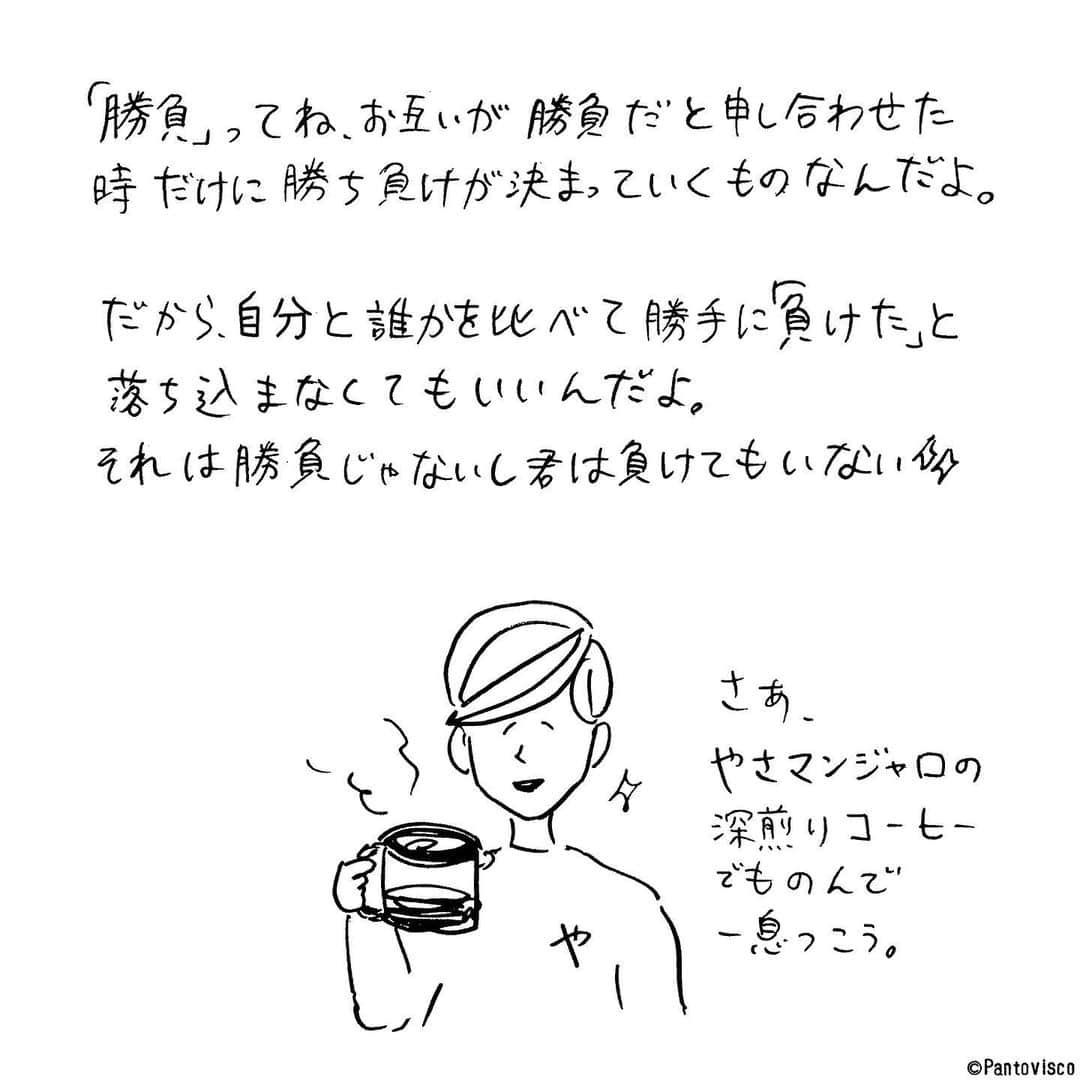 「勝負」ってね、お互いが勝負だと申し合わせた
時だけに勝ち負けが決まっていくものなんだよ。
だから、自分と誰かを比べて勝手に「負けた」と
落ち込まなくてもいいんだよ。
それは勝負じゃないし君は負けてもいない
さぁ、
やさマンジャロの
深煎りコーヒー
でものんで
一息つこう。
や
©Pantovisco